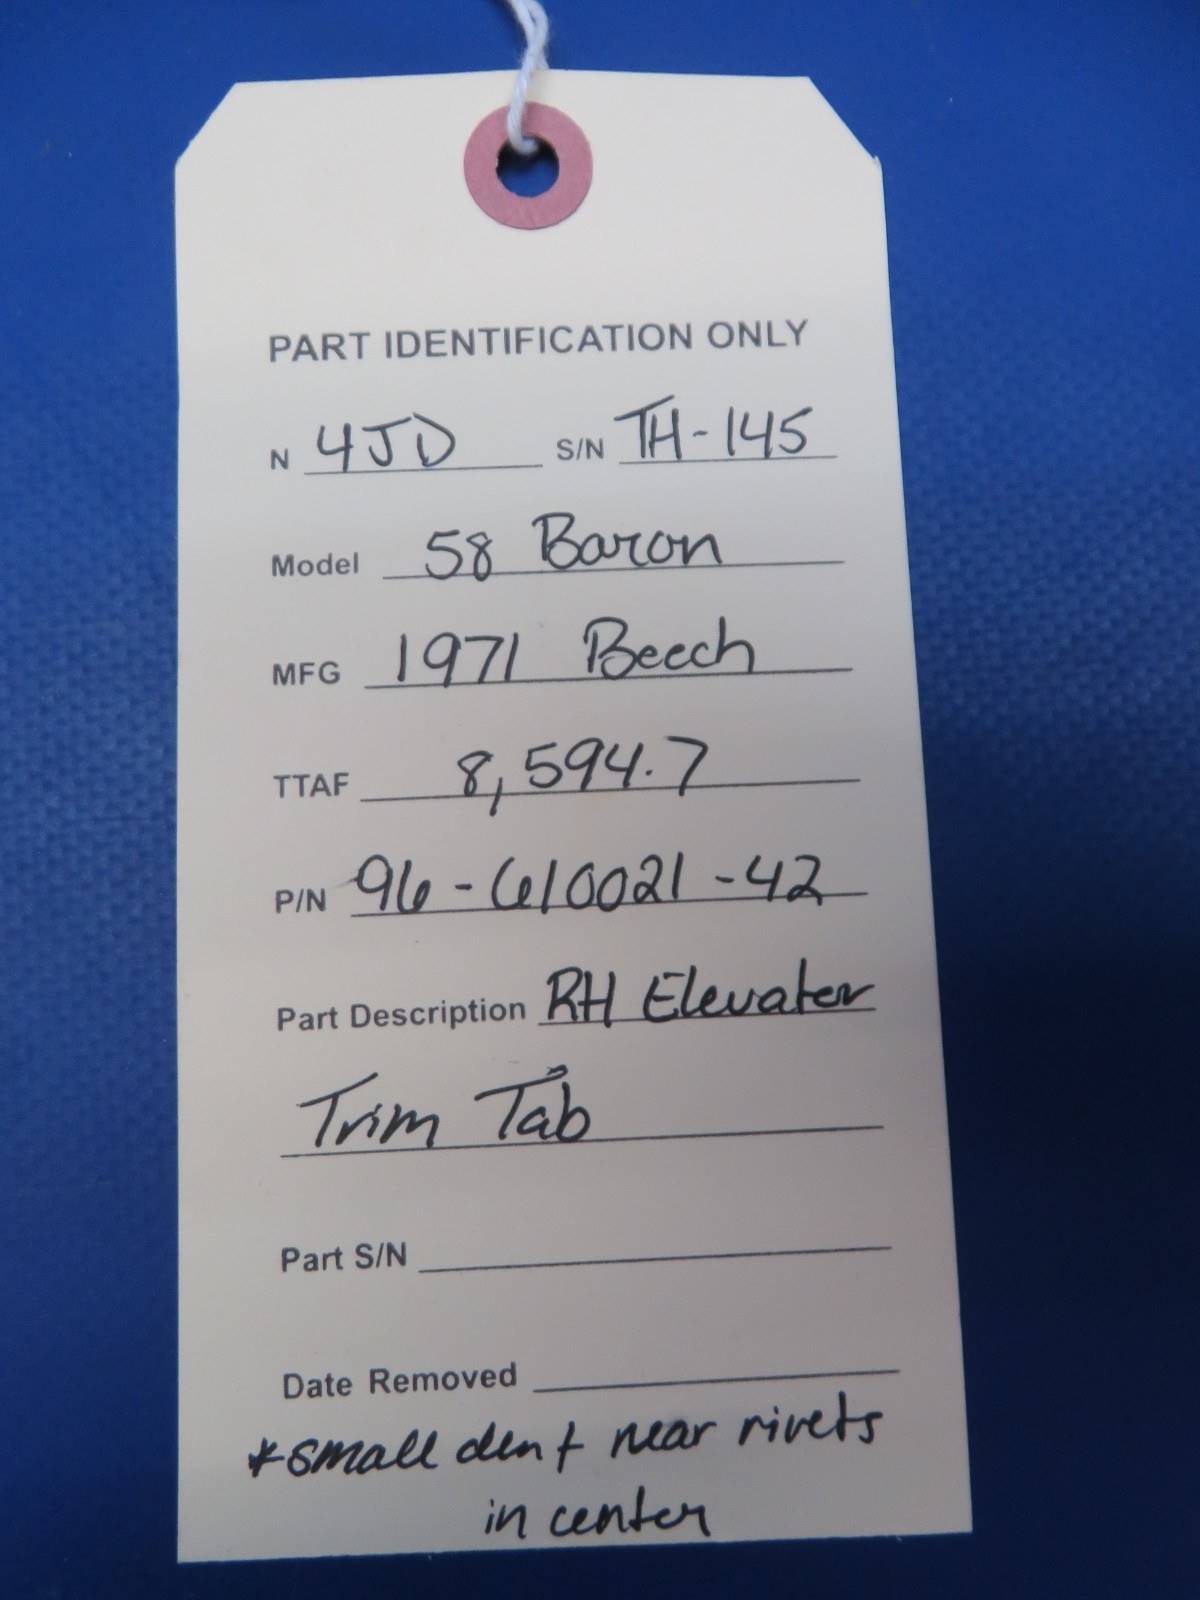 PART IDENTIFICATION ONLY
N 4JD S/N TH-145
Model 58 Baron
MFG 1971 Beech
TTAF 8,594.7
P/N 96-610021-42
Part Description RH Elevater
Trim Tab
Part S/N
Date Removed
*small dent near rivets
in center